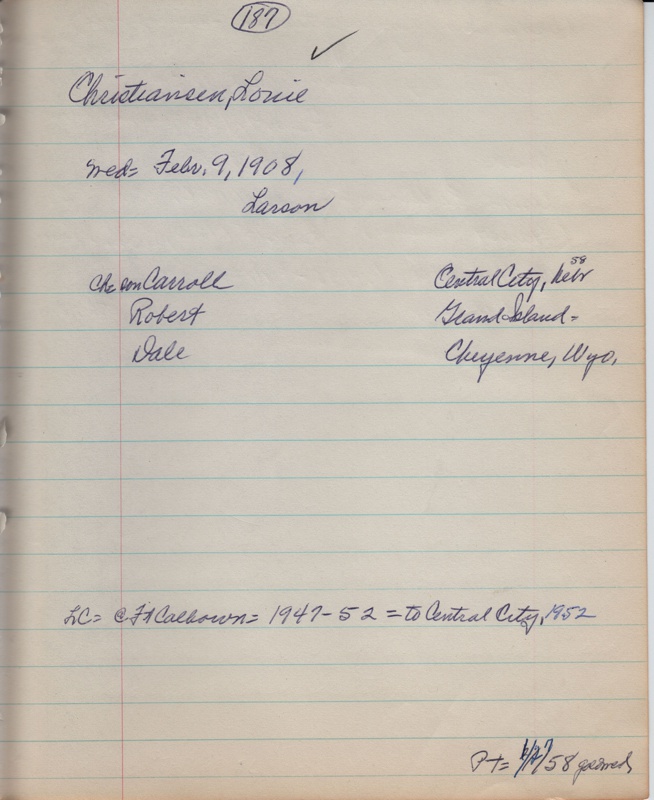 187
✓
Christiansen, Louie
med= Febr. 9, 1908,
Larson
Carroll Central City, Nebr 58
Robert Grand Island=
Dale Cheyenne, Wyo,
LC= @ Ft Calhown= 1947-52 = to Central City, 1952
PT= 58